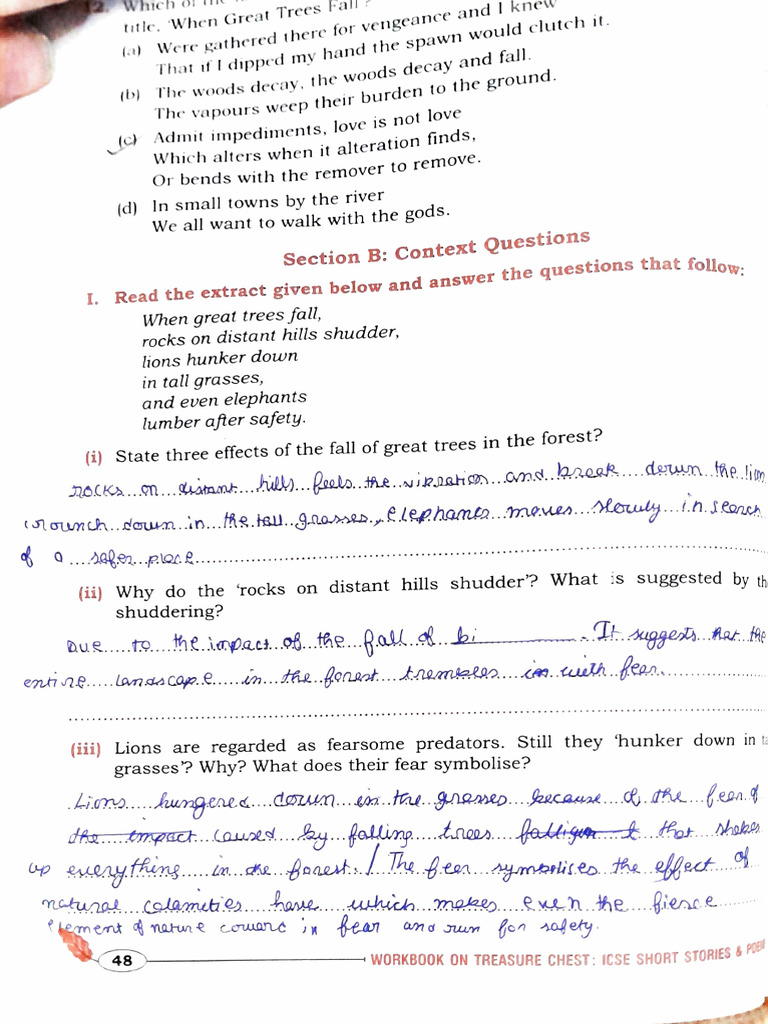 12. Which of the
title, 'When Great Trees Fall'?
(a) Were gathered there for vengeance and I knew
That if I dipped my hand the spawn would clutch it.
(b) The woods decay, the woods decay and fall.
The vapours weep their burden to the ground.
(c) Admit impediments, love is not love
Which alters when it alteration finds,
Or bends with the remover to remove.
(d) In small towns by the river
We all want to walk with the gods.
Section B: Context Questions
I. Read the extract given below and answer the questions that follow:
When great trees fall,
rocks on distant hills shudder,
lions hunker down
in tall grasses,
and even elephants
lumber after safety.
(i) State three effects of the fall of great trees in the forest?
rocks on distant hills feels the vibration and break down the lion
crounch down in the tall grasses, elephants moves slowly in search
of a safer place
(ii) Why do the 'rocks on distant hills shudder'? What is suggested by th
shuddering?
Due to the impact of the fall of bi. It suggests that the
entire landscape in the forest trembles in with fear.
(iii) Lions are regarded as fearsome predators. Still they 'hunker down in ta
grasses'? Why? What does their fear symbolise?
Lions hungered down in the grasses because of the fear of
the impact caused by falling trees that shakes
up everything in the forest. / The fear symbolises the effect of
natural calamities have which makes even the fierce
element of nature coward in fear and run for safety.
48 WORKBOOK ON TREASURE CHEST: ICSE SHORT STORIES & POEM